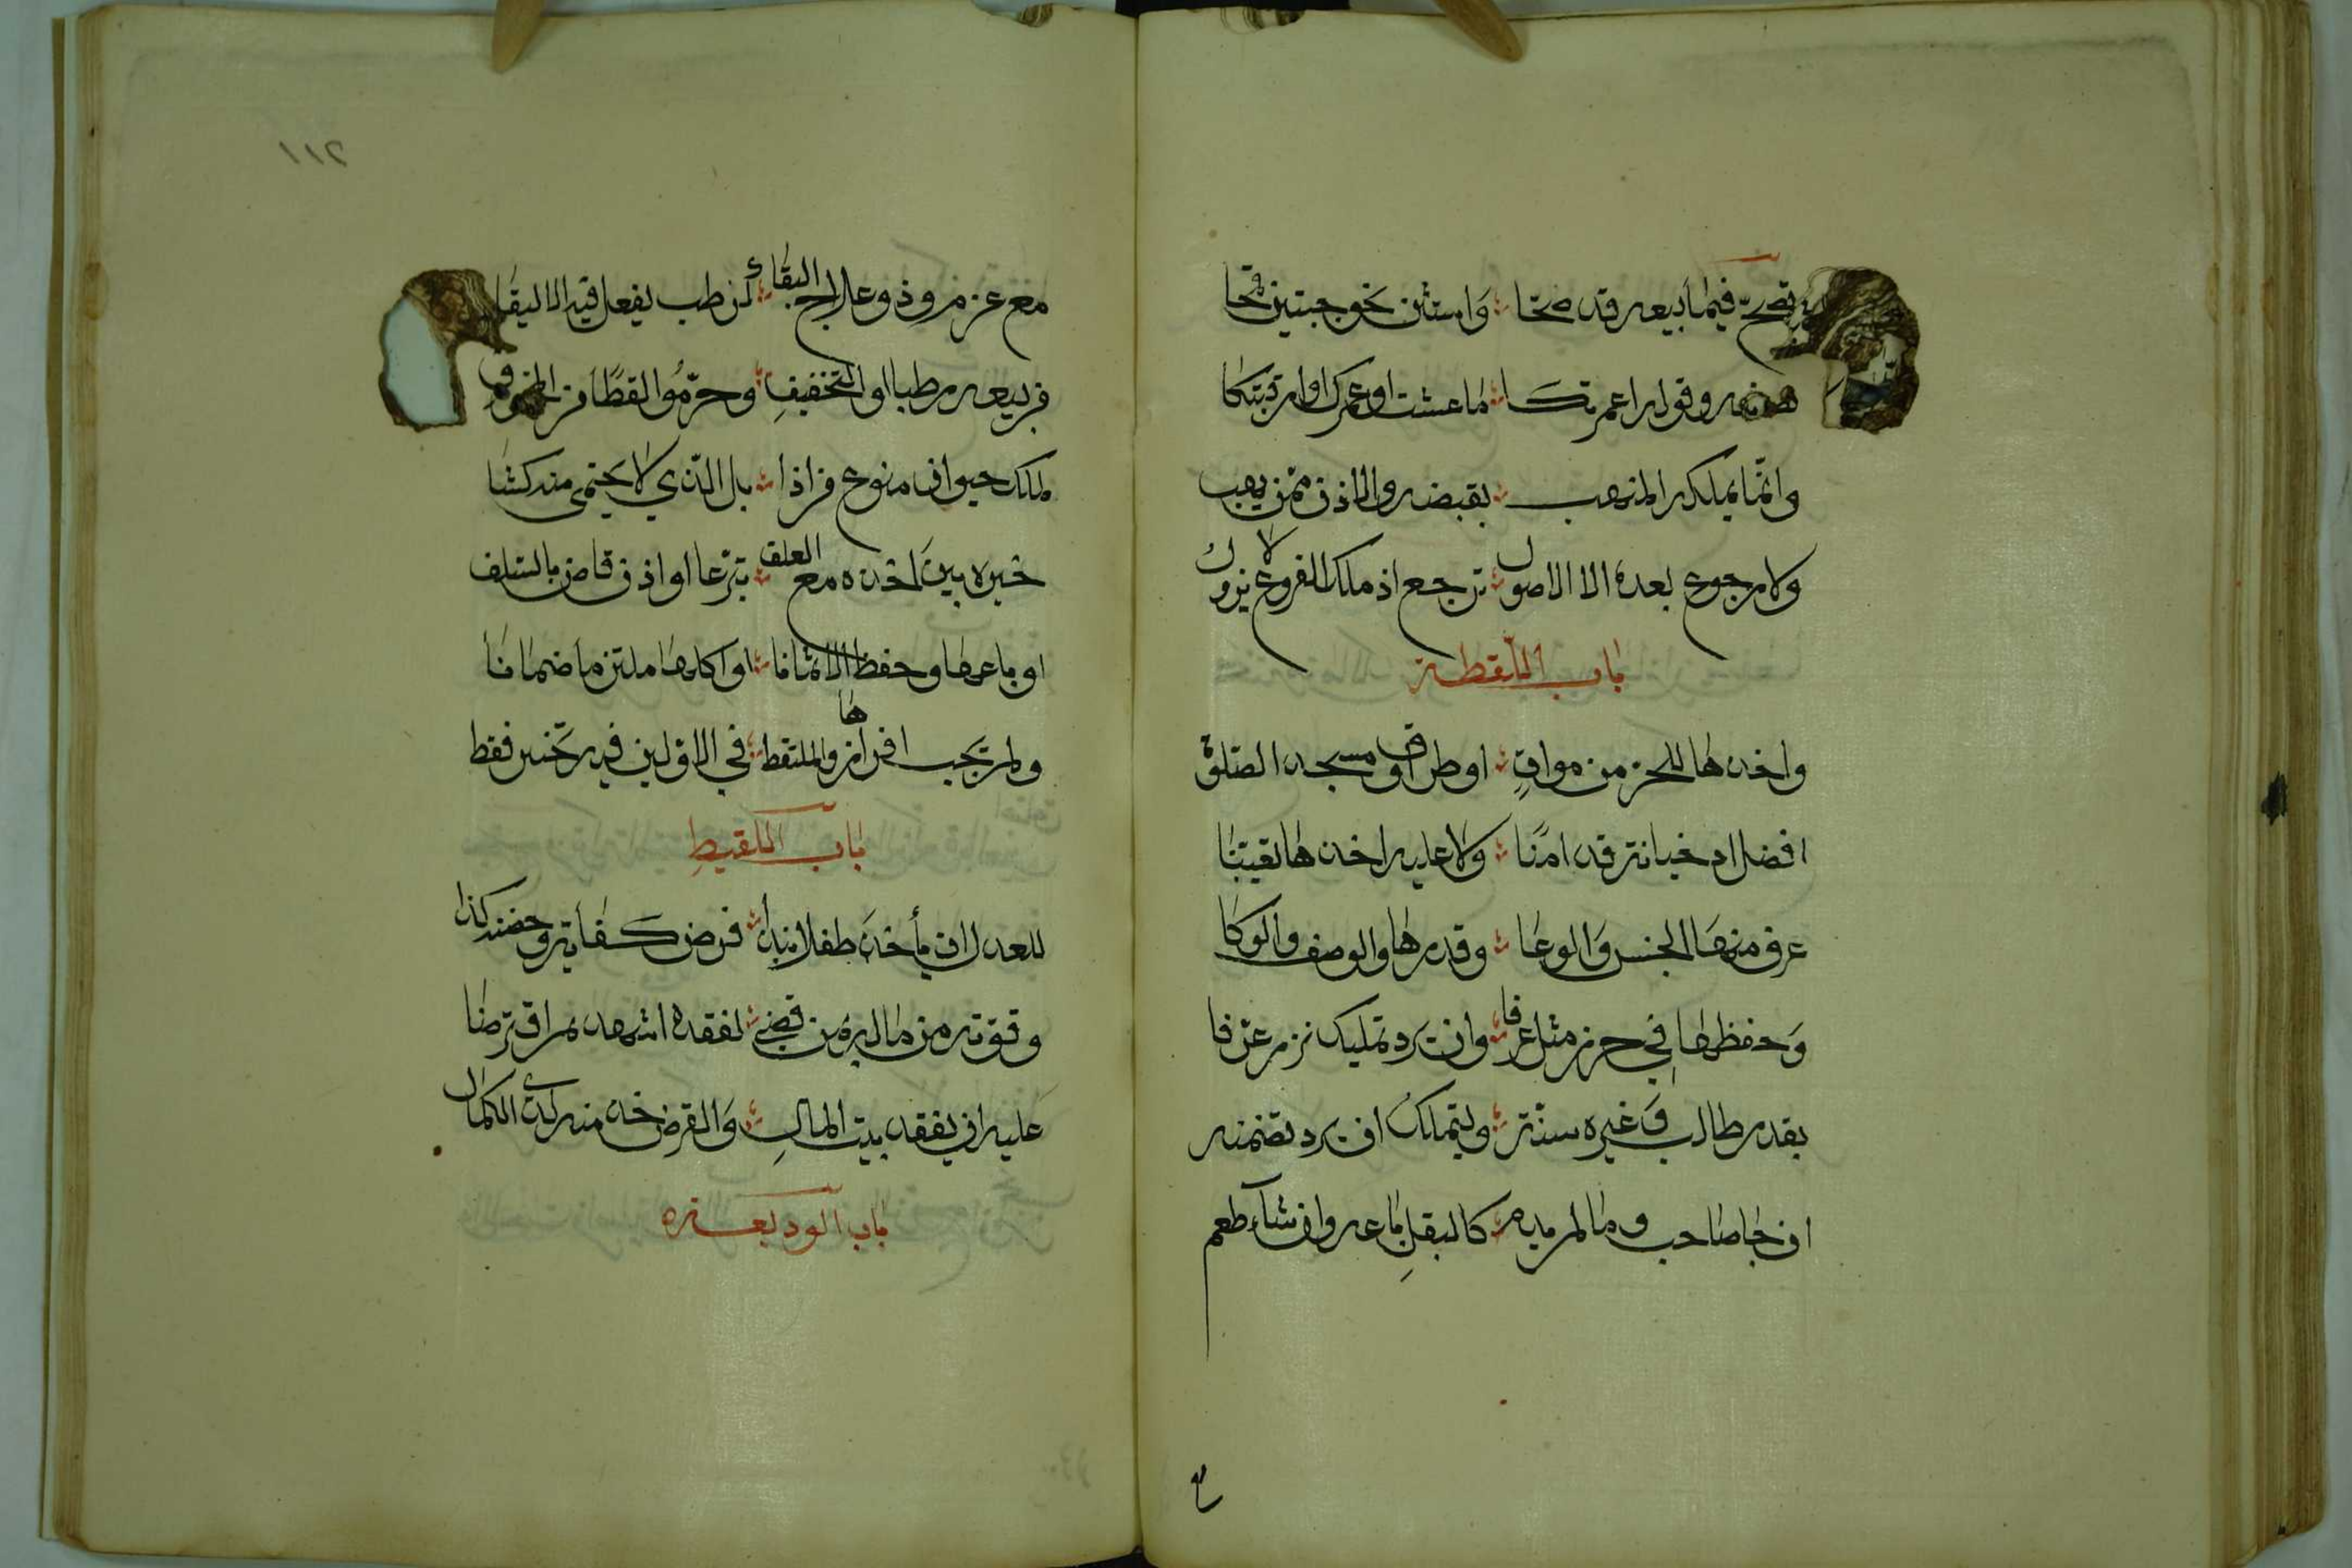 تصح فيما بيعه قد صحا واستثن نحو حبتين قمحا
وقوله اعمرتكا ما عشت او عمرك او ارقبتكا
وانما يملكه المتهب بقبضه والاذن ممن يهب
ولا رجوع بعده الا الاصول ترجع اذ ملك الفروع لا يزول
باب اللقطة
واخذها للحرز من موات او طرق او مسجد الصلوة
افضل اذ خيانة قد امنا ولا عليه اخذها تعينا
عرف منها الجنس والوعا وقدرها والوصف والوكا
وحفظها في حرز مثل عرفا وان يرد تمليك نزر عرفا
بقدر طالب وغيره سنة وليتملك ان يرد تضمنه
ان جا صاحب وما لم يدم كالبقل باعه وان شاء طعم
٢١١
مع عزمه وذو علاج للبقاء كرطب يفعل فيه الاليقا
من بيعه رطبا او التخفيف وحرموا لقطا من المخوف
لملك حيوان منوع من اذا بل الذي لا يحتمى منه كشا
خيره بين اخذه مع العلف تبرعا او اذن قاض بالسلف
او باعها وحفظ الاثمانا او اكلها ملتزما ضمانا
ولم يجب افرازها والملتقط في الاولين فيه تخيير فقط
باب اللقيط
للعدل ان يأخذ طفلا نبذا فرض كفاية وحضنه كذا
وقوته من ماله بمن قضى لفقده اشهد ثم اقترضا
عليه ان يفقد بيت المال والقرض خذ منه لدى الكمال
باب الوديعة